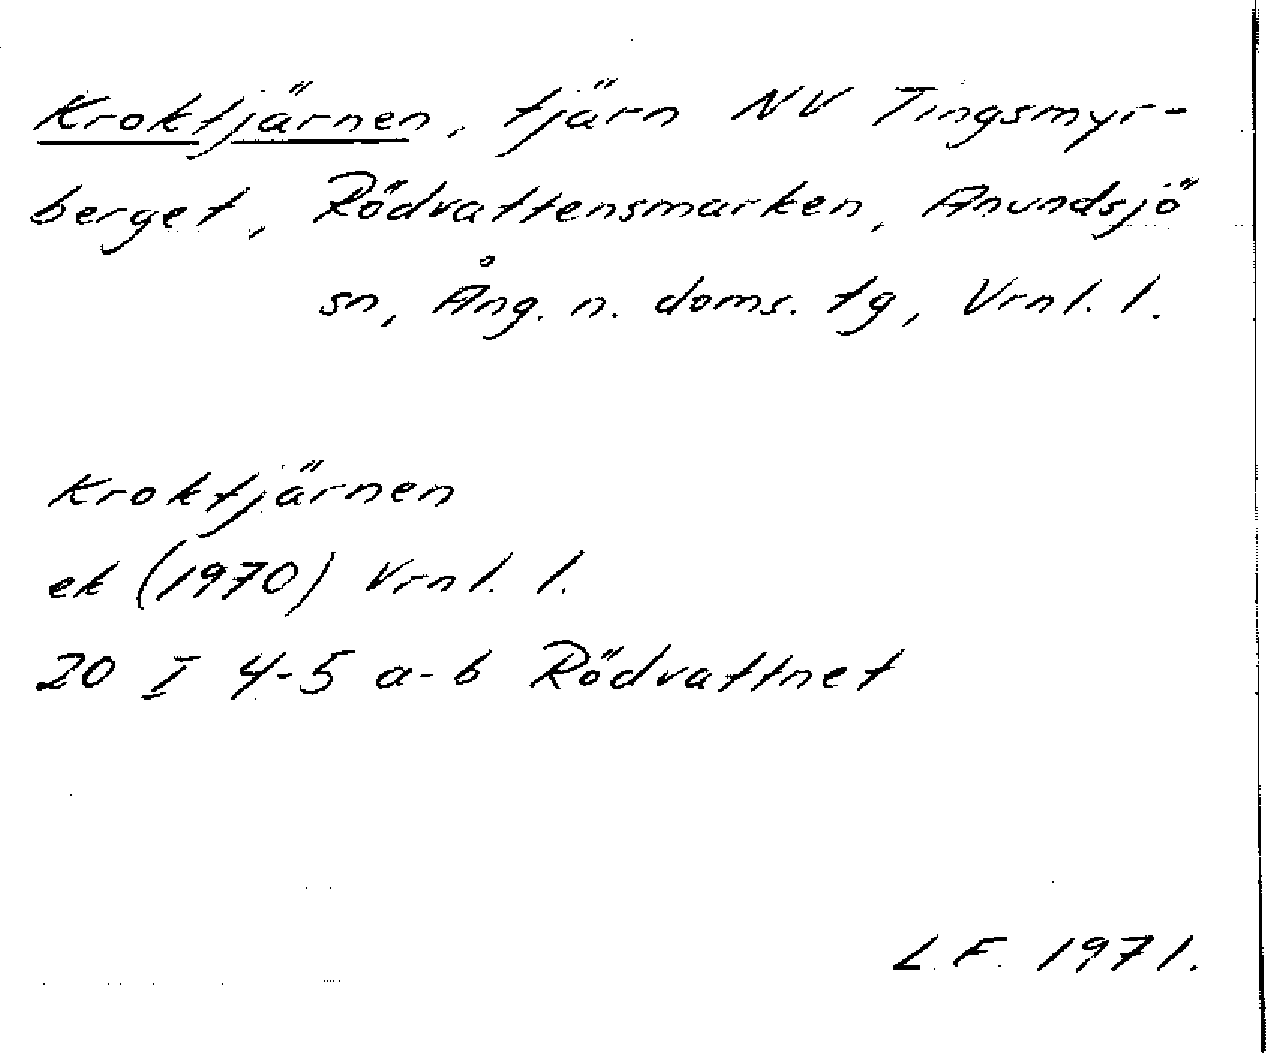 Kroktjärnen, tjärn NV Tingsmyr-
berget, Rödvattensmarken, Anundsjö
sn, Ång. n. doms. tg, Vrnl. l.
Kroktjärnen
ek (1970) Vrnl. l.
20 I 4-5 a-b Rödvattnet
L.F. 1971.